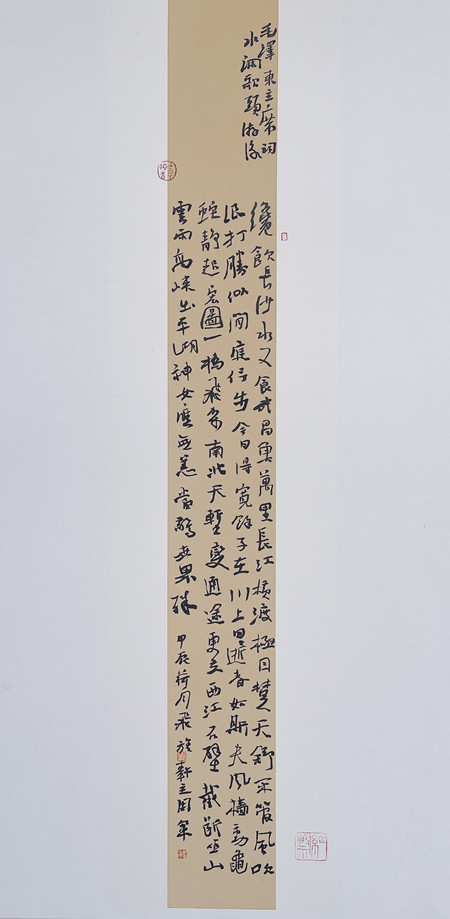 毛澤東主席詞
水調歌頭游泳
纔飲長沙水又食武昌魚萬里長江橫渡極目楚天舒不管風吹
浪打勝似閒庭信步今日得寬餘子在川上曰逝者如斯夫風檣動龜
蛇靜起宏圖一橋飛架南北天塹變通途更立西江石壁截斷巫山
雲雨高峽出平湖神女應無恙當驚世界殊
甲辰荷月飛軒主